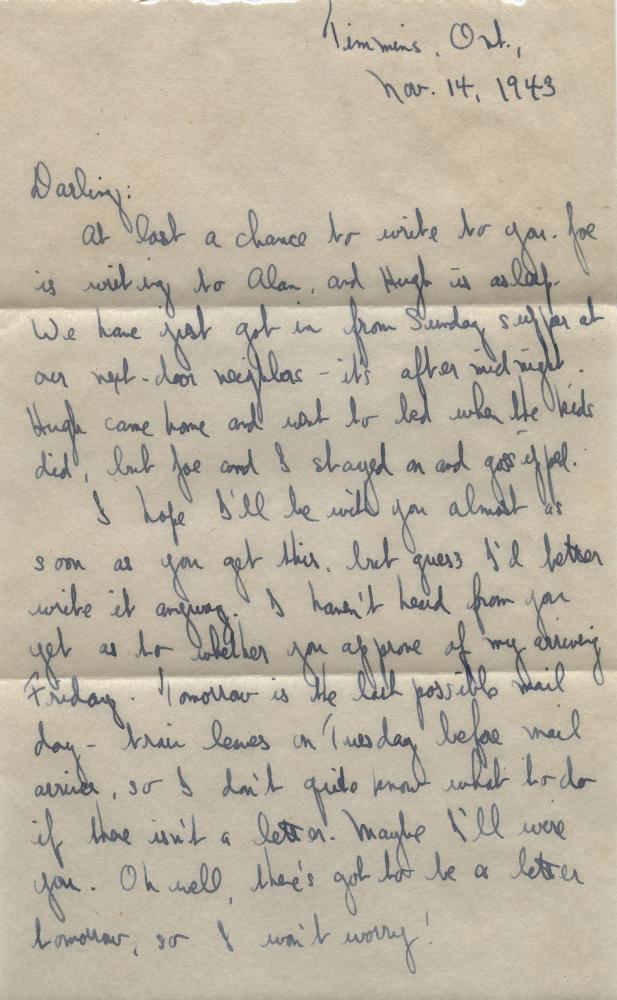 Timmins, Ont.,
Nov. 14, 1943
Darling:
At last a chance to write to you. Joe
is writing to Alan, and Hugh is asleep.
We have just got in from Sunday supper at
our next-door neighbors - it's after midnight.
Hugh came home and went to bed when the kids
did, but Joe and I stayed on and gossipped.
I hope I'll be with you almost as
soon as you get this, but guess I'd better
write it anyway. I haven't heard from you
yet as to whether you approve of my arriving
Friday. Tomorrow is the last possible mail
day - train leaves on Tuesday before mail
arrives, so I don't quite know what to do
if there isn't a letter. Maybe I'll wire
you. Oh well, there's got to be a letter
tomorrow, so I won't worry!